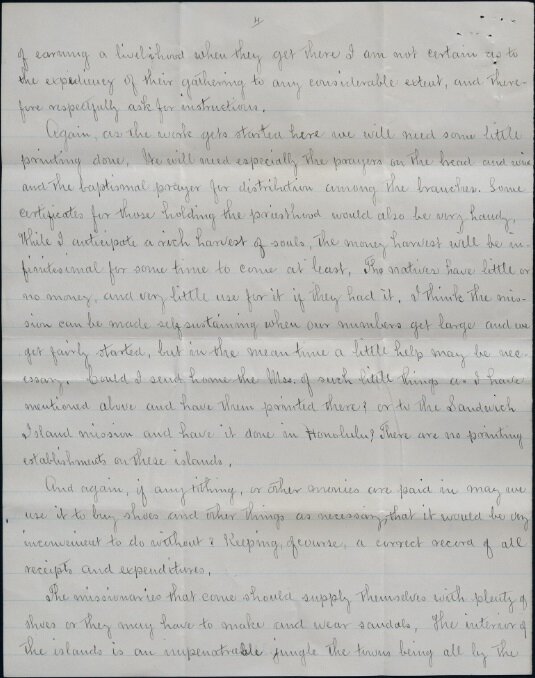 4
of earning a livelihood when they get there I am not certain as to
the expediency of their gathering to any considerable extent, and there-
fore respectfully ask for instructions.
Again, as the work gets started here we will need some little
printing done. We will need especially the prayers on the bread and wine
and the baptismal prayer for distribution among the branches. Some
certificates for those holding the priesthood would also be very handy.
While I anticipate a rich harvest of souls, the money harvest will be in-
finitesimal for some time to come at least. The natives have little or
no money, and very little use for it if they had it. I think the mis-
sion can be made self sustaining when our numbers get large and we
get fairly started, but in the mean time a little help may be nec-
essary. Could I send home the Mss. of such little things as I have
mentioned above and have them printed there? or to the Sandwich
Island mission and have it done in Honolulu? There are no printing
establishments on these islands.
And again, if any tithing, or other monies are paid in may we
use it to buy shoes and other things as necessary, that it would be very
inconvenient to do without? Keeping, of course, a correct record of all
receipts and expenditures.
The missionaries that come should supply themselves with plenty of
shoes or they may have to make and wear sandals. The interior of
the islands is an impenetrable jungle the towns being all by the